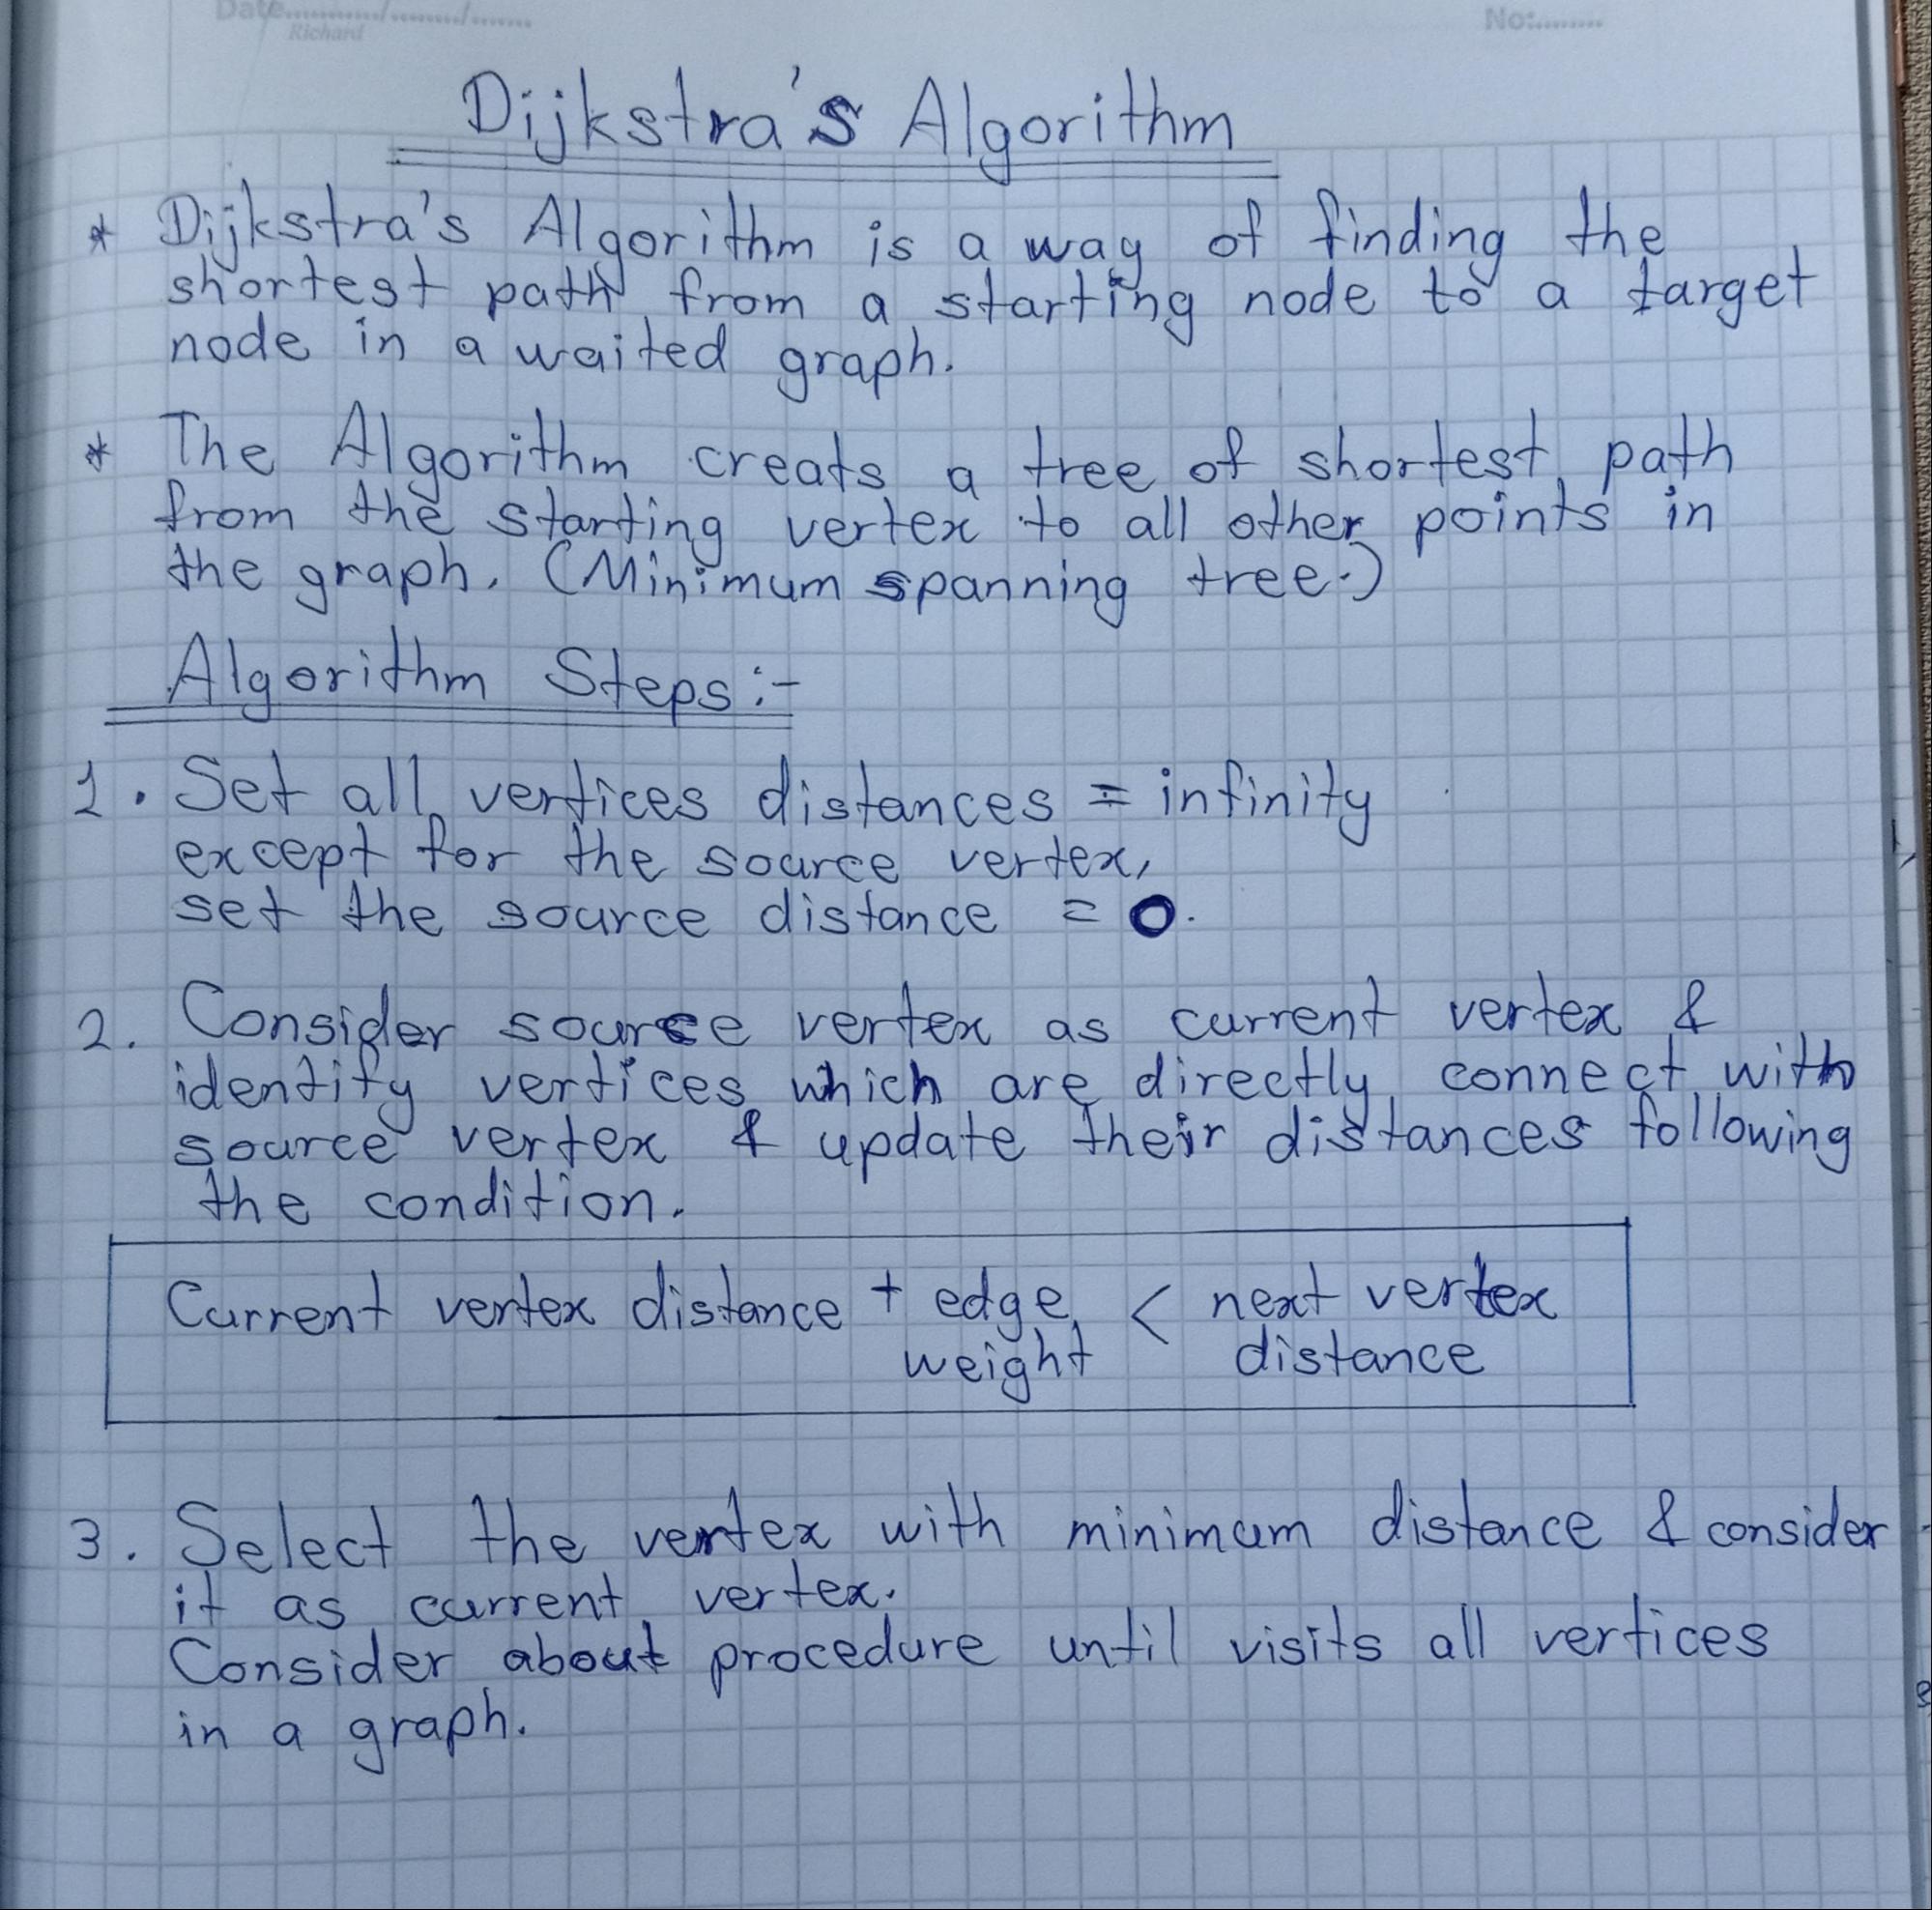 Date........../......../.......
Richard
No:........
Dijkstra's Algorithm
* Dijkstra's Algorithm is a way of finding the
shortest path from a starting node to a target
node in a waited graph.
* The Algorithm creats a tree of shortest path
from the starting vertex to all other points in
the graph. (Minimum spanning tree.)
Algorithm Steps:-
1. Set all vertices distances = infinity
except for the source vertex,
set the source distance = 0.
2. Consider source vertex as current vertex &
identify vertices which are directly connect with
source vertex & update their distances following
the condition.
Current vertex distance + edge < next vertex
weight distance
3. Select the vertex with minimum distance & consider
it as current vertex.
Consider about procedure until visits all vertices
in a graph.